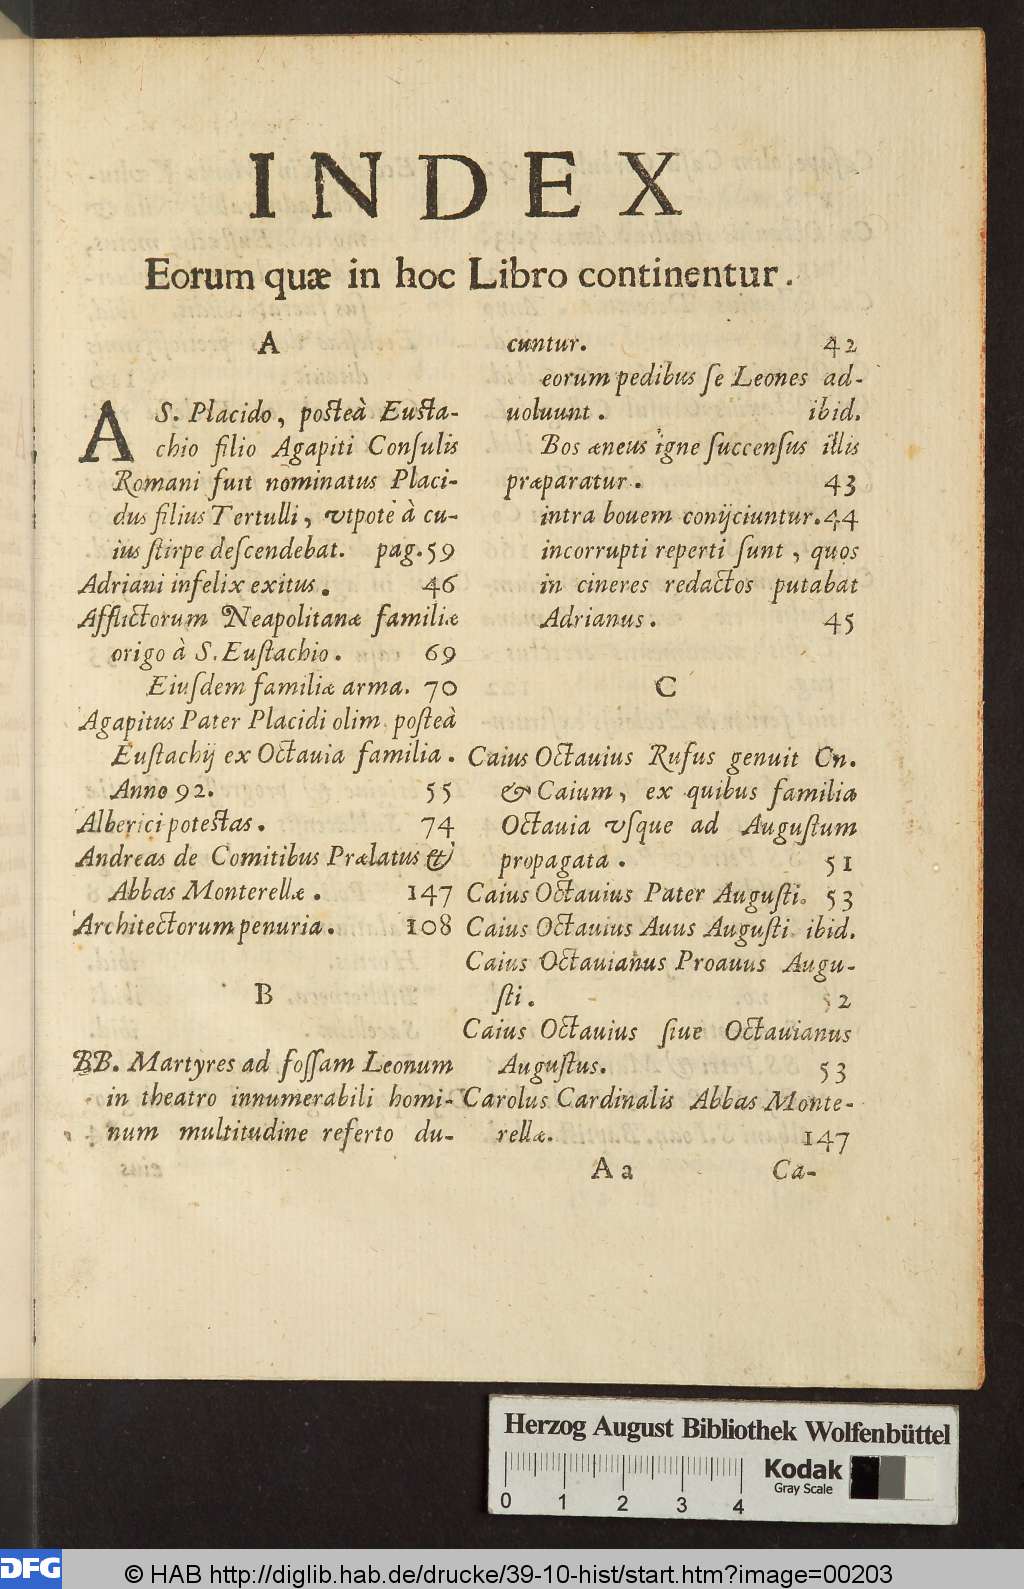 INDEX
Eorum quæ in hoc Libro continentur.
A
A S. Placido, posteà Eusta-
chio filio Agapiti Consulis
Romani fuit nominatus Placi-
dus filius Tertulli, vtpote à cu-
ius stirpe descendebat. pag. 59
Adriani infelix exitus. 46
Afflictorum Neapolitanæ familiæ
origo à S. Eustachio. 69
Eiusdem familiæ arma. 70
Agapitus Pater Placidi olim posteà
Eustachij ex Octauia familia.
Anno 92. 55
Alberici potestas. 74
Andreas de Comitibus Prælatus &
Abbas Monterellæ. 147
Architectorum penuria. 108
B
BB. Martyres ad fossam Leonum
in theatro innumerabili homi-
num multitudine referto du-
cuntur. 42
eorum pedibus se Leones ad-
uoluunt. ibid.
Bos æneus igne succensus illis
præparatur. 43
intra bouem conijciuntur. 44
incorrupti reperti sunt, quos
in cineres redactos putabat
Adrianus. 45
C
Caius Octauius Rufus genuit Cn.
& Caium, ex quibus familia
Octauia vsque ad Augustum
propagata. 51
Caius Octauius Pater Augusti. 53
Caius Octauius Auus Augusti ibid.
Caius Octauianus Proauus Augu-
sti. 52
Caius Octauius siue Octauianus
Augustus. 53
Carolus Cardinalis Abbas Monte-
rellæ. 147
Aa Ca-
Herzog August Bibliothek Wolfenbüttel
0 1 2 3 4
Kodak
Gray Scale
DFG © HAB http://diglib.hab.de/drucke/39-10-hist/start.htm?image=00203